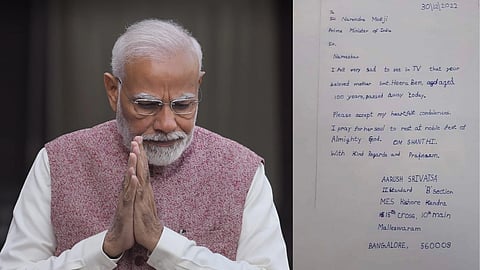 30/12/2022
To
Sir Narendra Modiji
Prime Minister of India
Sir,
Namaskar
I felt very sad to see in TV that your
beloved mother Smt. Heera Ben, aged
100 years, passed away today.
Please accept my heartfelt condolences.
I pray for her soul to rest at noble feet of
Almighty God. OM SHANTHI.
With Kind Regards and Pranaam.
AARUSH SRIVATSA
II Standard 'B' section
MES Kishore Kendra
15th cross, 10th main
Malleswaram
BANGALORE, 560003